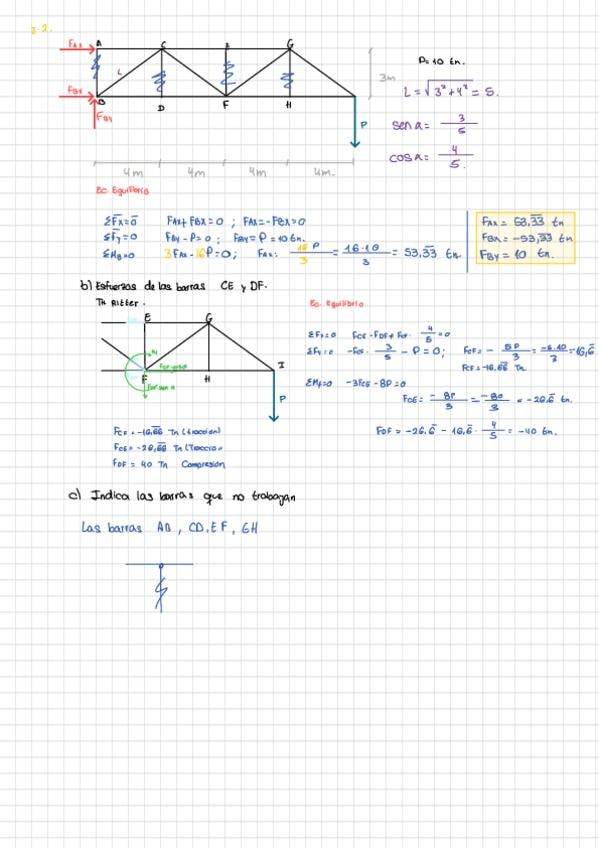 J.2.
FAx A C E G
L 3m
FBx B D F H
FBy P
4m 4m 4m 4m.
P=10 tn.
L = √3²+4² = 5.
sen α = 3/5
cos α = 4/5.
Ec. Equilibrio
ΣFx=0 FAx+FBx=0 ; FAx=-FBx=0
ΣFy=0 FBy-P=0 ; FBy=P=10 tn.
ΣMB=0 3FAx-16P=0; FAx: 16P/3 = 16·10/3 = 53,33 tn.
FAx = 53,33 tn
FBx = -53,33 tn
FBy = 10 tn.
b) Esfuerzos de las barras CE y DF.
TH Ritter.
E G
F H I
P
Ec. Equilibrio
ΣFy=0 -FCF· 3/5 - P=0;
ΣMF=0 -3FCE-8P=0
FCE= -8P/3 = -80/3 = -26.6 tn.
FDF = -26,6 - 16,6 · 4/5 = -40 tn.
FCF=-16,66 Tn (traccion)
FCE=-26,66 Tn (Traccion
FDF = 40 Tn Compresión
c) Indica las barras que no trabajan
Las barras AB, CD, EF, GH